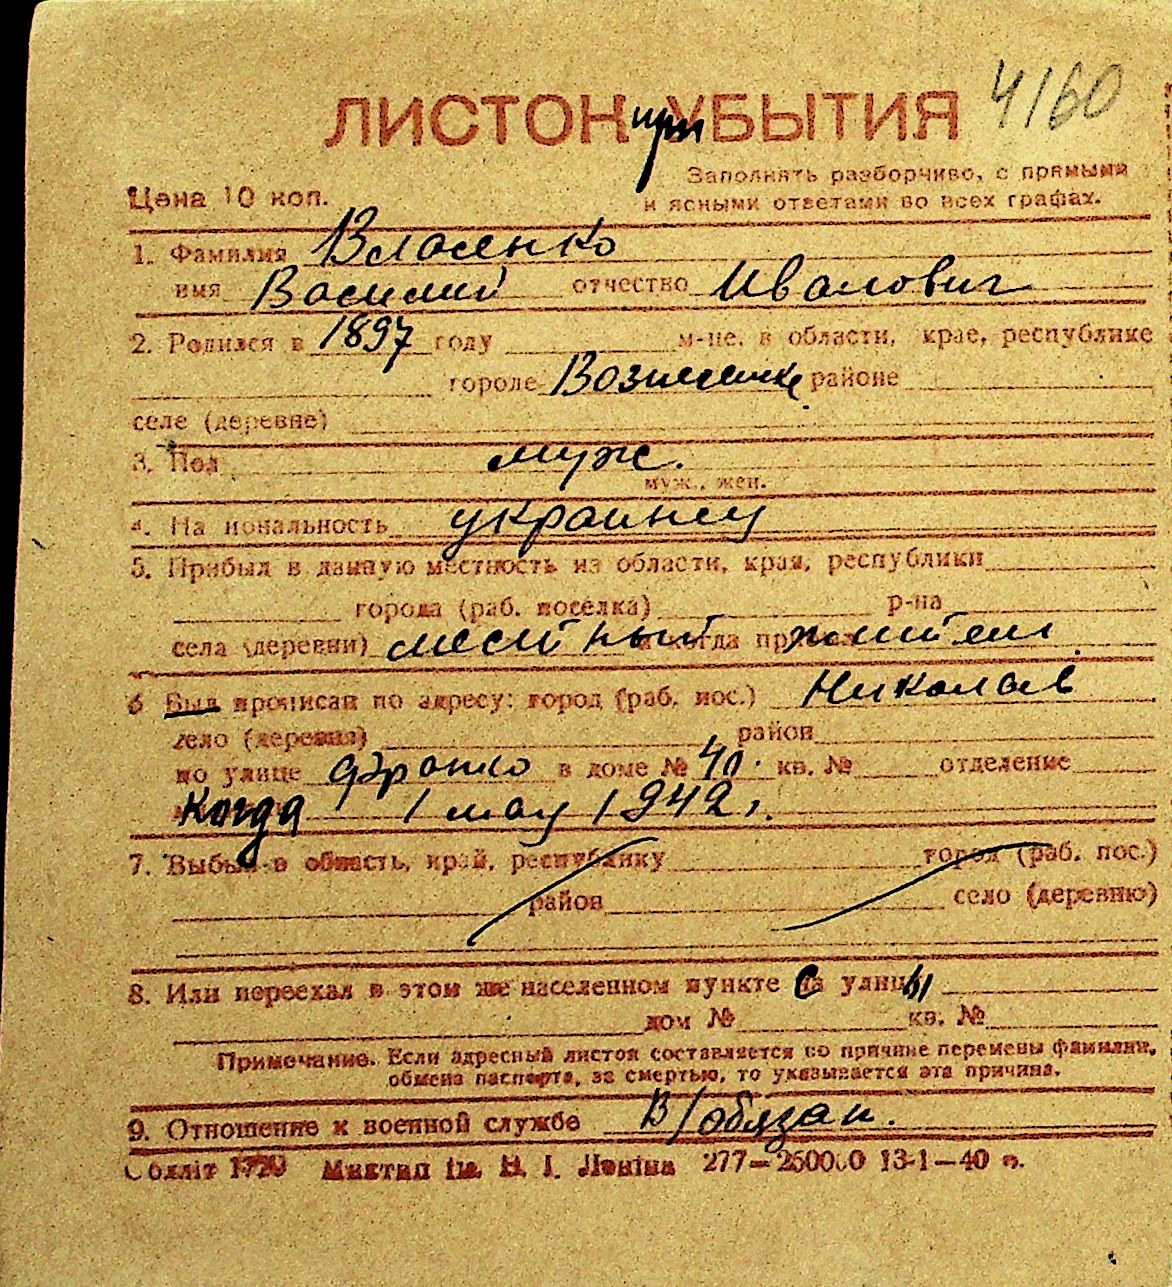 ЛИСТОК при УБЫТИЯ 4160
Цена 10 коп.
Заполнять разборчиво, с прямыми
и ясными ответами во всех графах.
1. Фамилия Власенко
имя Василий отчество Иванович
2. Родился в 1897 году м-це, в области, крае, республике
городе районе
селе (деревне)
3. Пол муж.
муж., жен.
4. Национальность украинец
5. Прибыл в данную местность из области, края, республики
города (раб. поселка) р-на
села (деревни) местный и когда прибыл житель
6 Был прописан по адресу: город (раб. пос.) Николаев
село (деревня) район
по улице Франко в доме № 40. кв. № отделение
Когда 1 мая 1942 г.
7. Выбыл в область, край, республику город (раб. пос.)
район село (деревню)
8. Или переехал в этом же населенном пункте с улицы
дом № кв. №
Примечание. Если адресный листок составляется по причине перемены фамилии,
обмена паспорта, за смертью, то указывается эта причина.
9. Отношение к военной службе В/обязан.
Облліт 1720 Миктип ім. В. І. Леніна 277—260000 13-1—40 р.